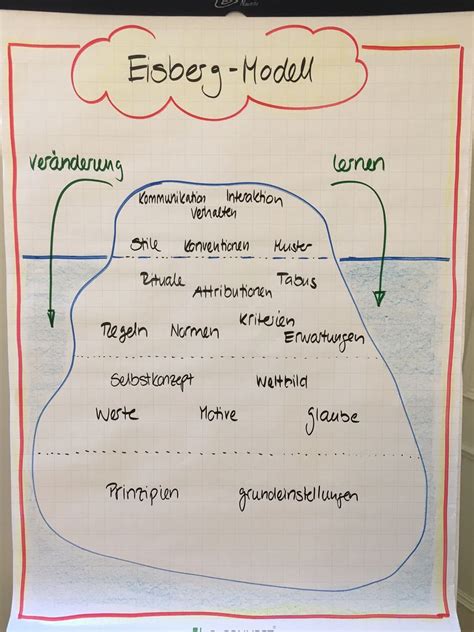 Eisberg-Modell
Veränderung
lernen
Kommunikation Interaktion
Verhalten
Stile Konventionen Muster
Rituale Attributionen Tabus
Regeln Normen Kriterien Erwartungen
Selbstkonzept Weltbild
Werte Motive Glaube
Prinzipien Grundeinstellungen